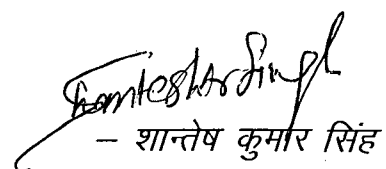 Shantesh Kr Singh
– शान्तेष कुमार सिंह